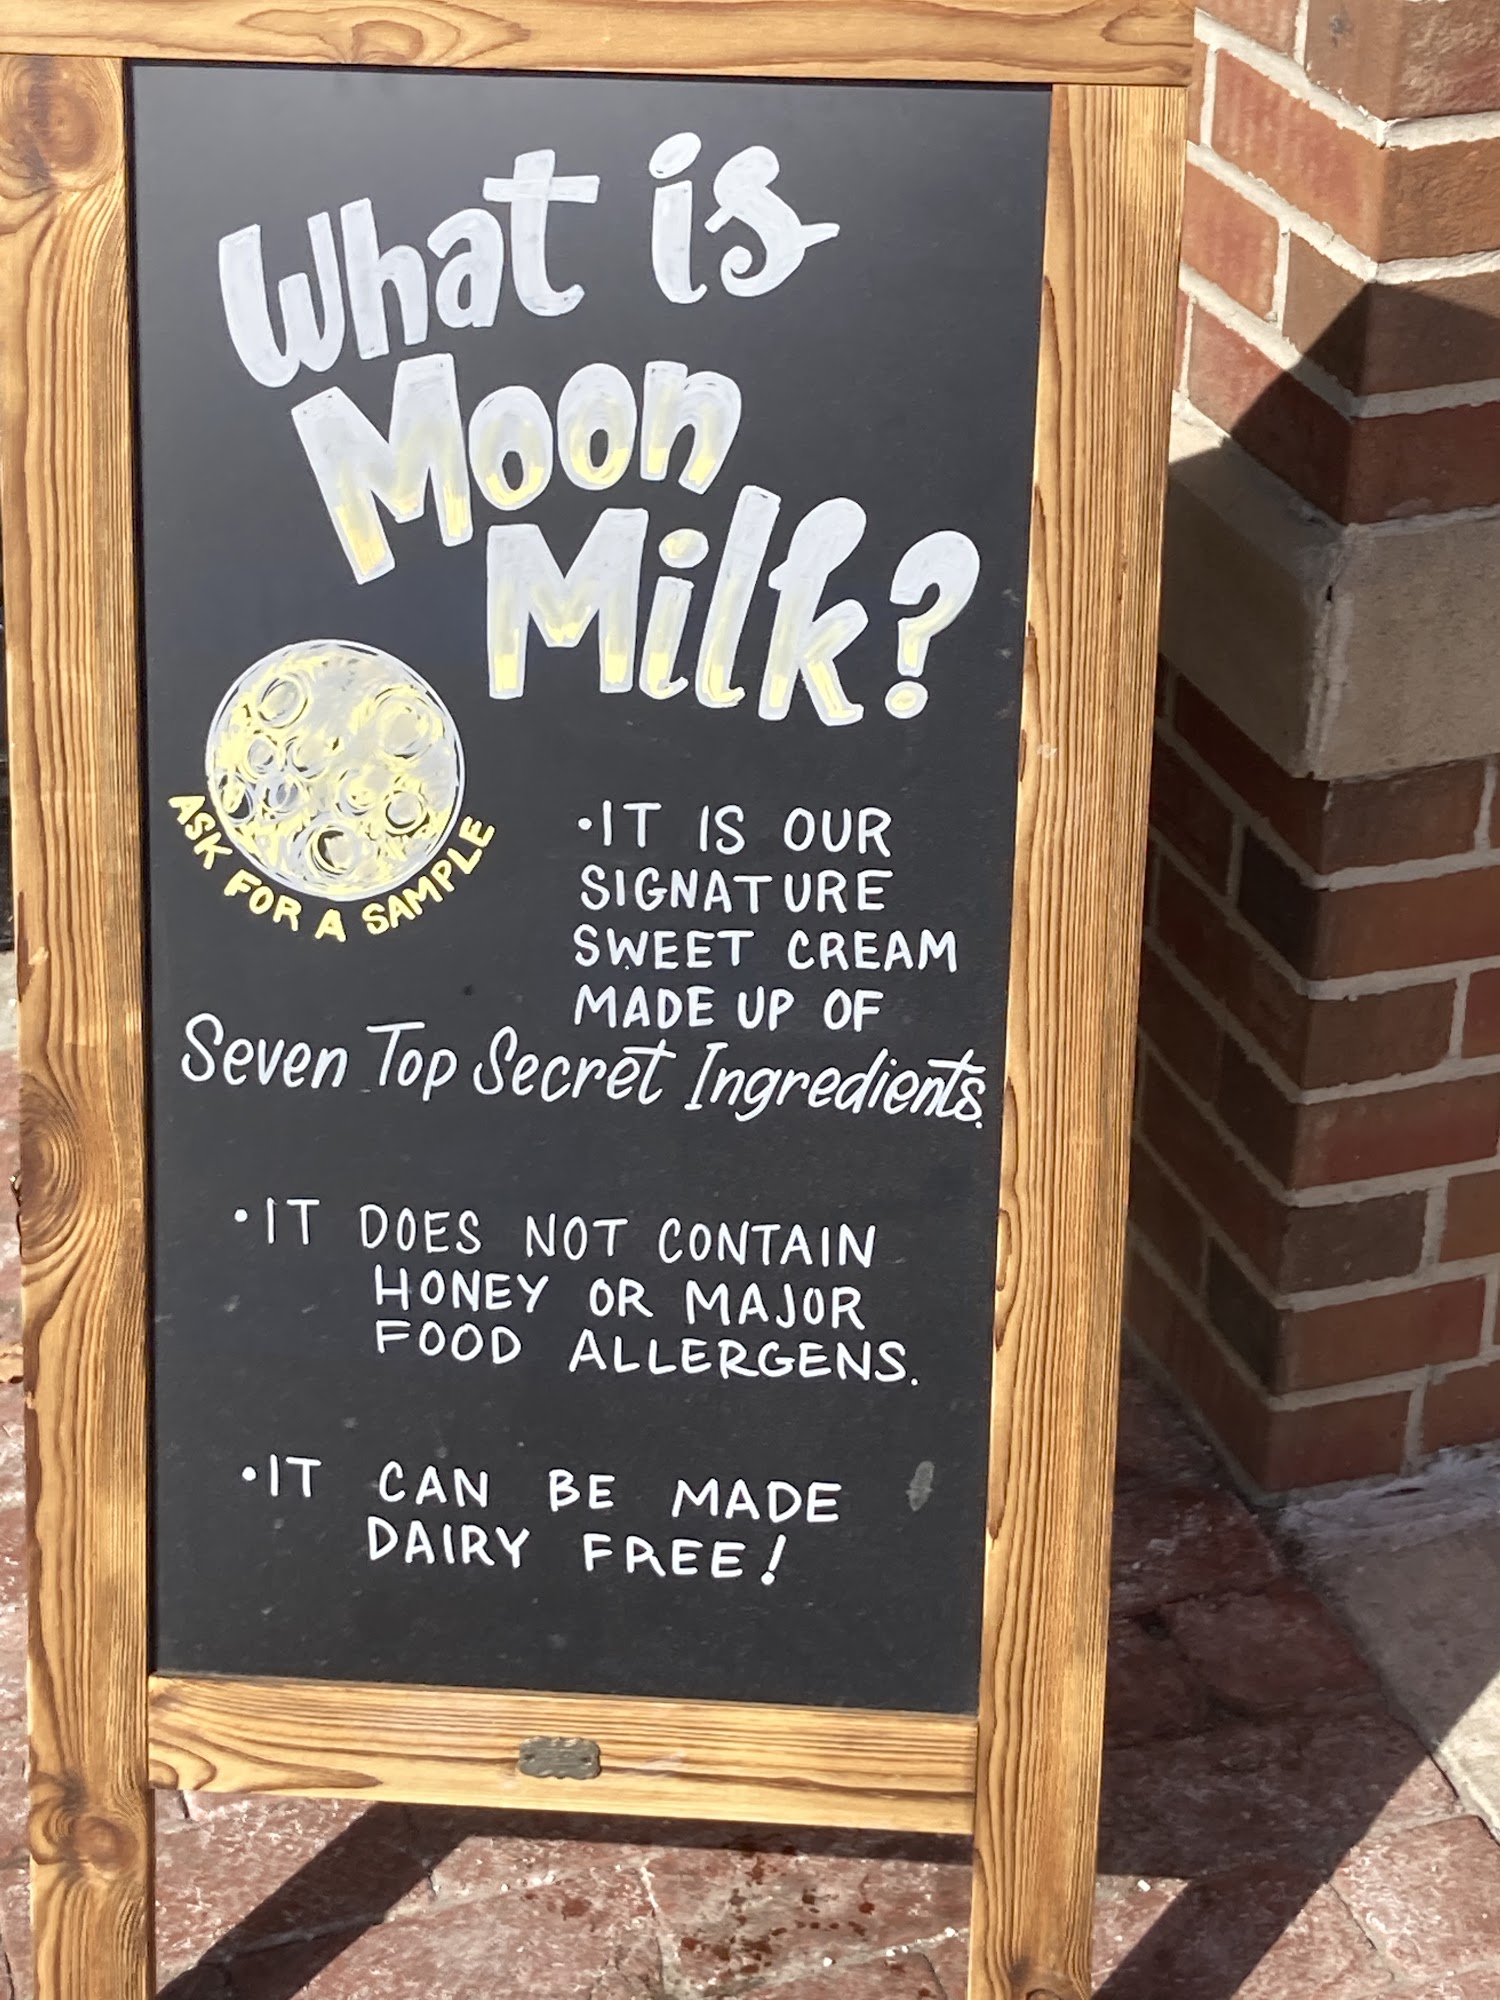 What is
Moon
Milk?
ASK FOR A SAMPLE
•IT IS OUR
SIGNATURE
SWEET CREAM
MADE UP OF
Seven Top Secret Ingredients.
•IT DOES NOT CONTAIN
HONEY OR MAJOR
FOOD ALLERGENS.
•IT CAN BE MADE
DAIRY FREE!